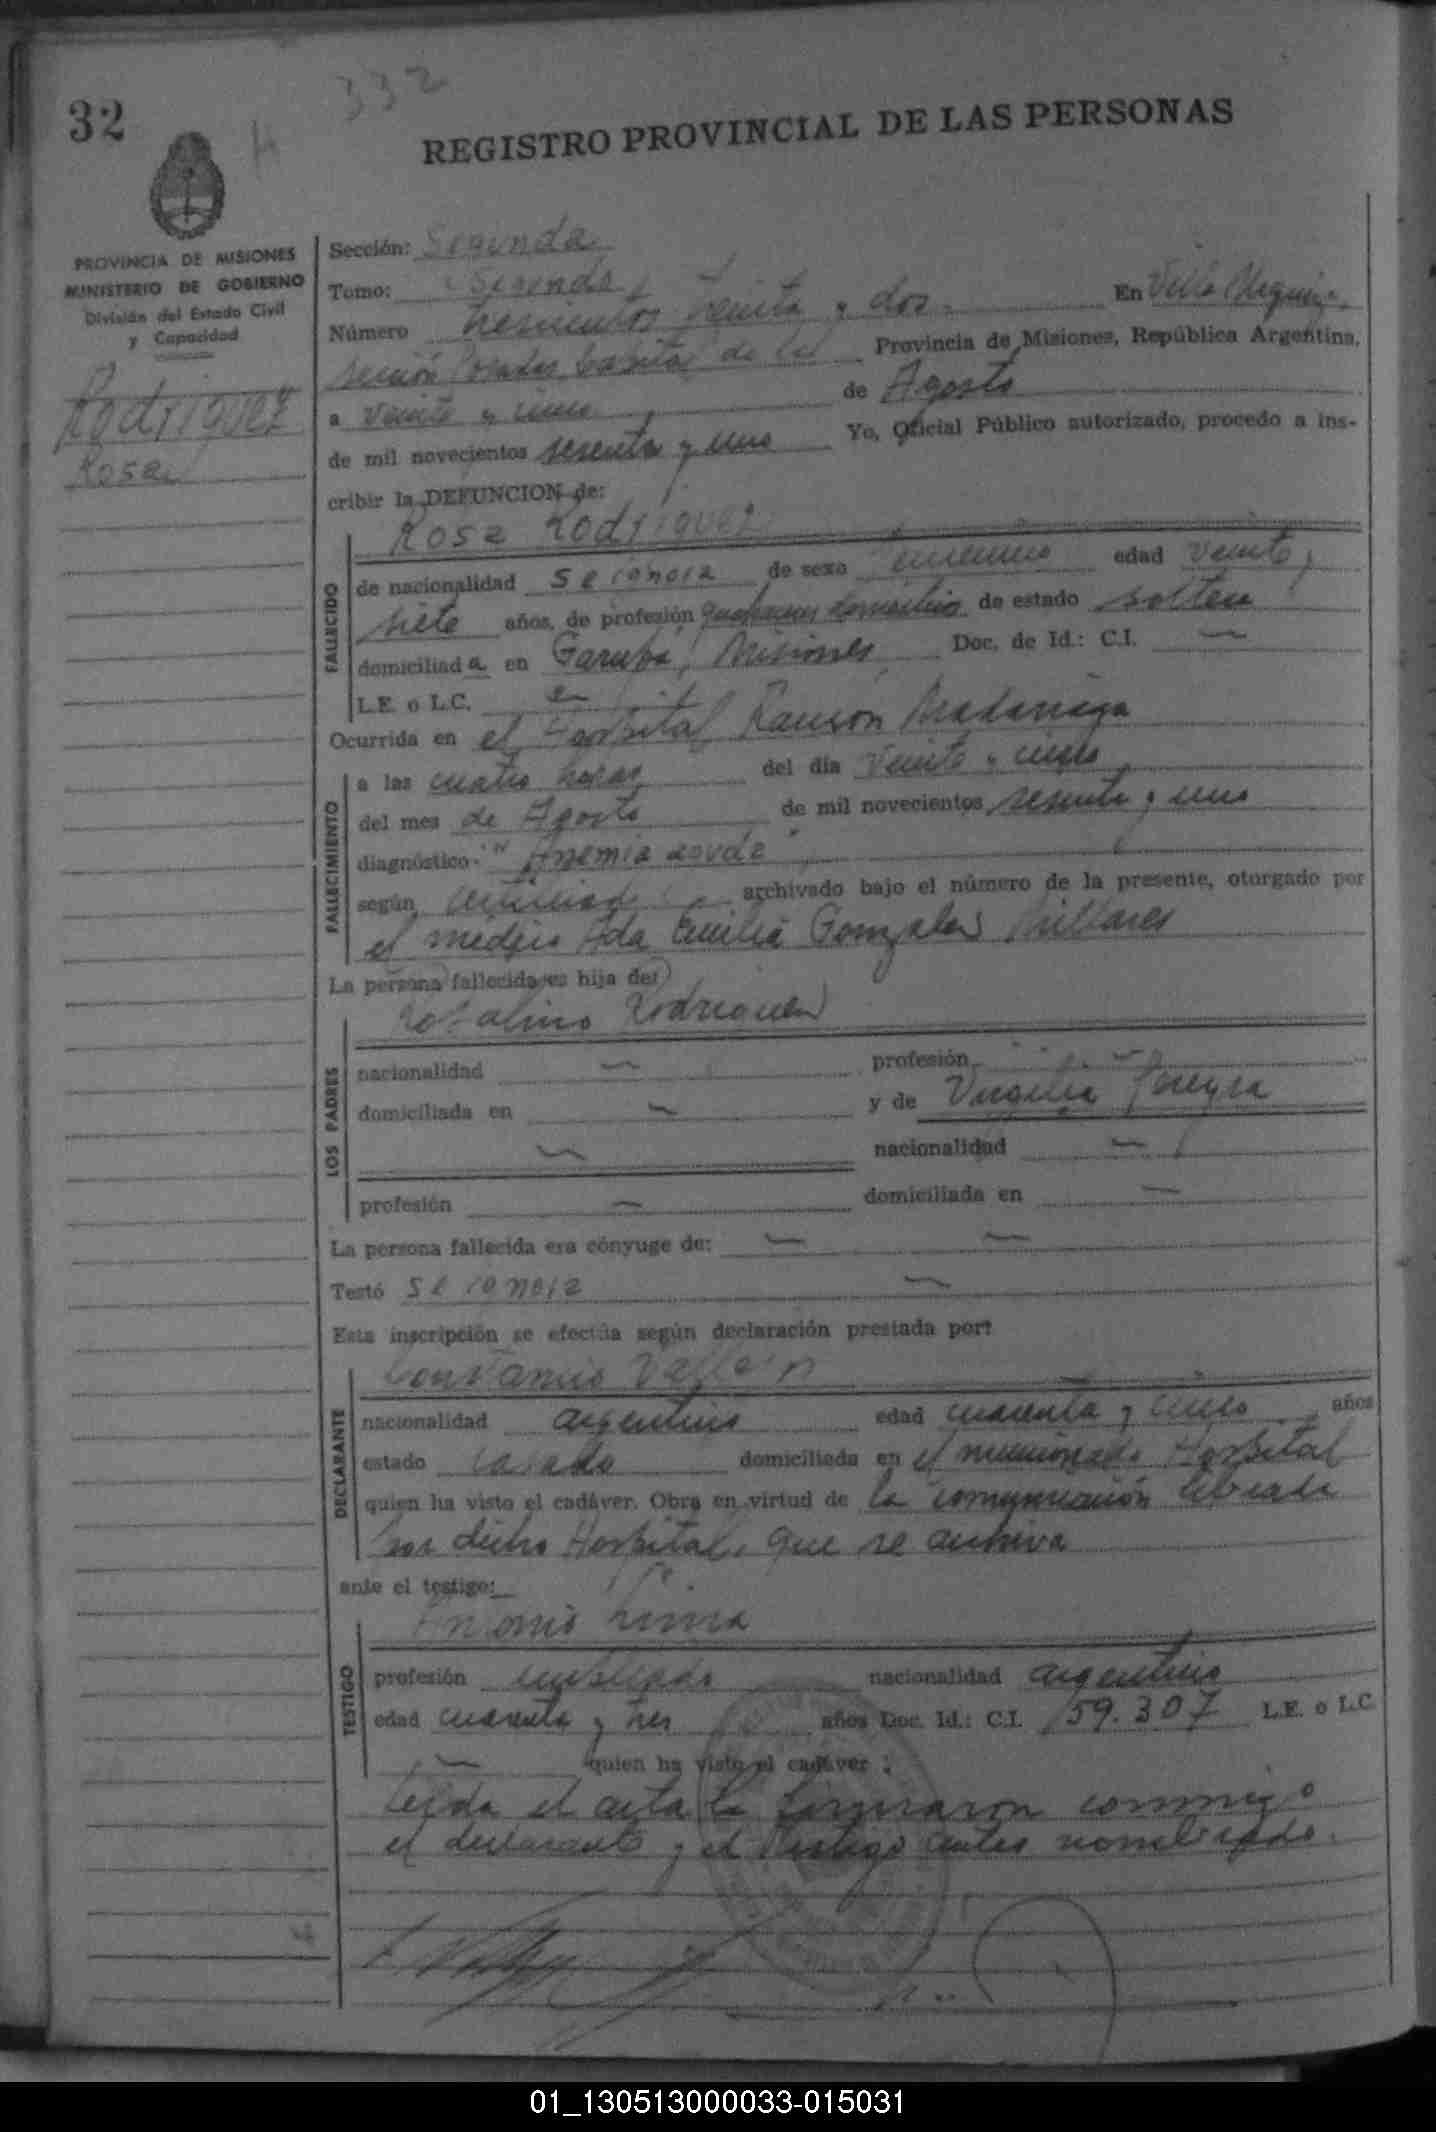 332
32
H
REGISTRO PROVINCIAL DE LAS PERSONAS
PROVINCIA DE MISIONES
MINISTERIO DE GOBIERNO
División del Estado Civil
y Capacidad
Rodriguez
Rosa
Sección: Segunda
Tomo: Segundo
Número trescientos treinta y dos. En Villa Urquiza,
sección Posadas Capital de la Provincia de Misiones, República Argentina,
a veinte y cinco de Agosto
de mil novecientos sesenta y uno Yo, Oficial Público autorizado, procedo a ins-
cribir la DEFUNCION de:
Rosa Rodriguez
FALLECIDO
de nacionalidad se ignora de sexo femenino edad veinte y
siete años, de profesión quehaceres domésticos de estado soltera
domiciliada en Garupá, Misiones, Doc. de Id.: C.I. —
L.E. o L.C. —
Ocurrida en el Hospital Ramón Madariaga
FALLECIMIENTO
a las cuatro horas del día veinte y cinco
del mes de Agosto de mil novecientos sesenta y uno
diagnóstico: "Anemia aguda"
según certificado archivado bajo el número de la presente, otorgado por
el médico Ada Emilia Gonzalez Millares
La persona fallecida es hija de:
Rosalino Rodriguez
LOS PADRES
nacionalidad — profesión —
domiciliada en — y de Virgilia Pereyra
— nacionalidad —
profesión — domiciliada en —
La persona fallecida era cónyuge de: — —
Testó se ignora —
Esta inscripción se efectúa según declaración prestada por:
Constancio
DECLARANTE
nacionalidad argentino edad cuarenta y cinco años
estado casado domiciliada en el mencionado Hospital
quien ha visto el cadáver. Obra en virtud de la comunicación librada
por dicho Hospital, que se archiva
ante el testigo:
Antonio Lima
TESTIGO
profesión empleado nacionalidad argentino
edad cuarenta y tres años Doc. Id.: C.I. 159.307 L.E. o L.C.
— quien ha visto el cadáver.
Leída el acta la firmaron conmigo
el declarante y el testigo antes nombrado.
01_130513000033-015031